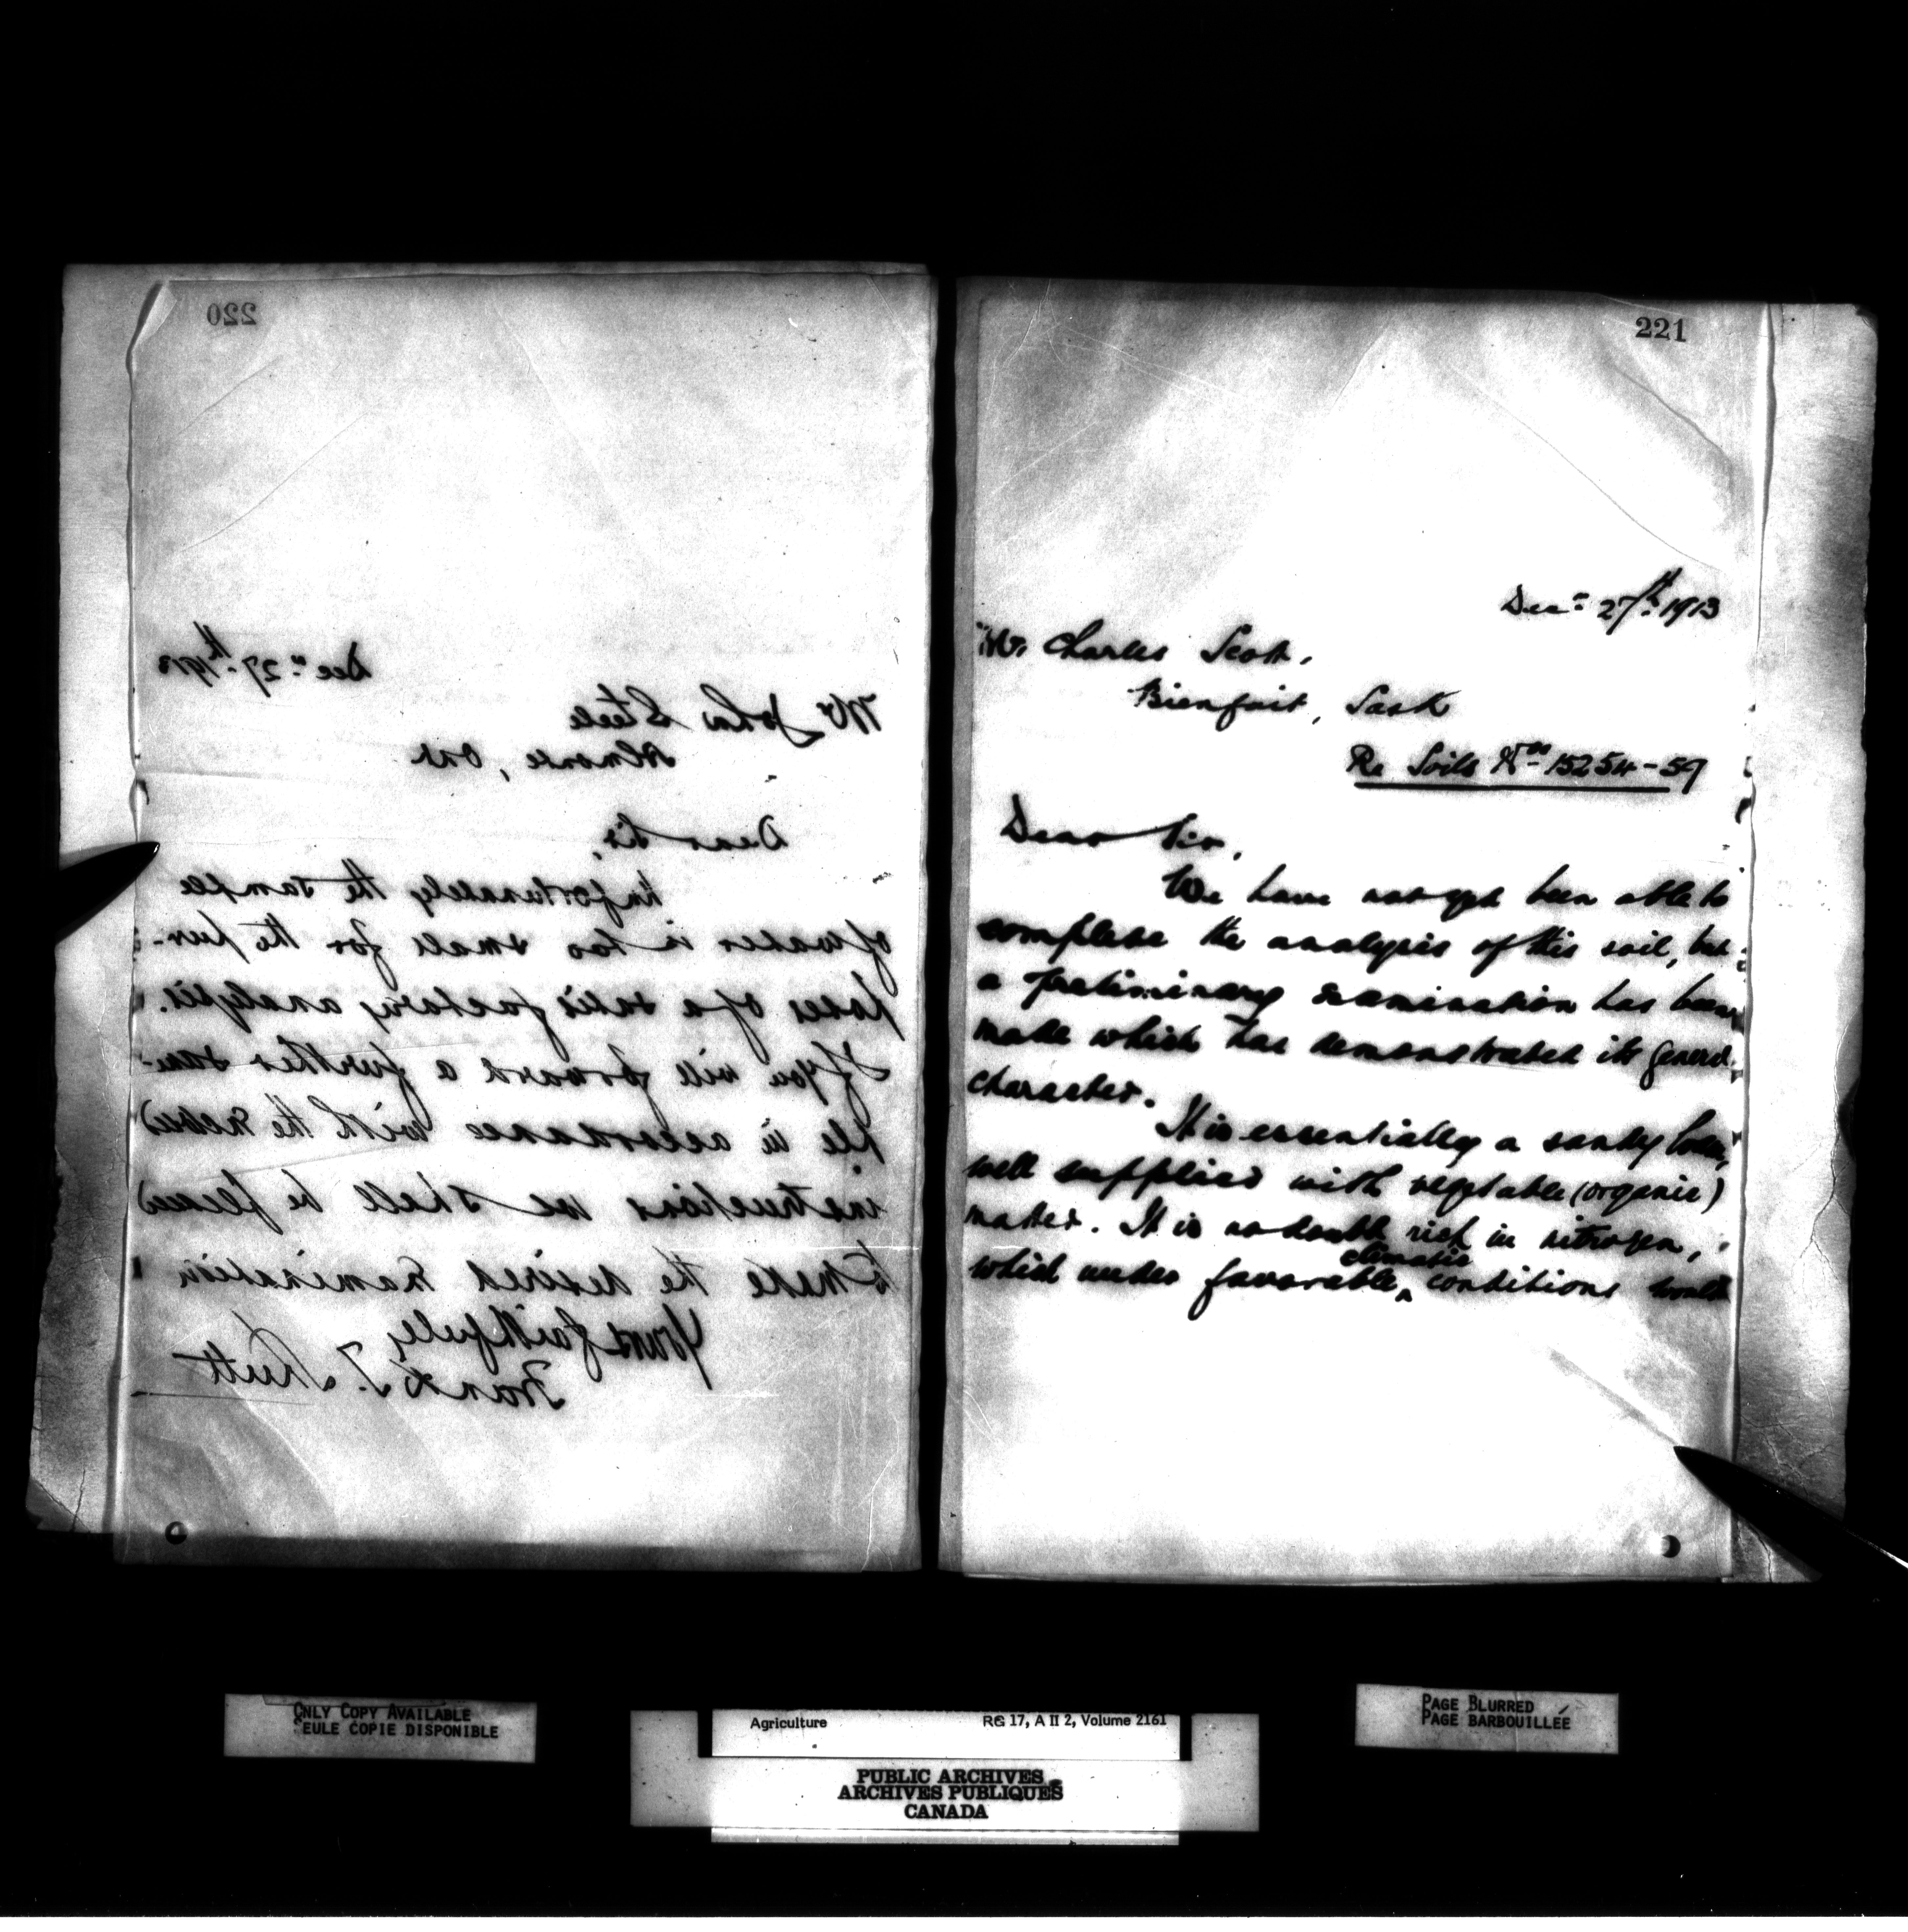 220
Decr. 27th. 1913
Mr John Steele
Almonte, Ont
Dear Sir,
Unfortunately the sample
of water is too small for the pur-
poses of a satisfactory analysis.
If you will forward a further sam-
ple in accordance with the
instructions we shall be pleased
to make the desired examination
Yours faithfully
Frank T. Shutt
221
Decr. 27th. 1913
Mr Charles Scott,
Bienfait, Sask
Re Soils Nos 15254-59
Dear Sir,
We have not yet been able to
complete the analysis of this soil, but
a preliminary examination has been
made which has demonstrated its general
character.
It is essentially a sandy loam,
well supplied with vegetable (organic)
matter. It is no doubt rich in nitrogen,
climatic
which under favorable ^ conditions would
ONLY COPY AVAILABLE
SEULE COPIE DISPONIBLE
Agriculture RG 17, A II 2, Volume 2161
PUBLIC ARCHIVES
ARCHIVES PUBLIQUES
CANADA
PAGE BLURRED
PAGE BARBOUILLÉE